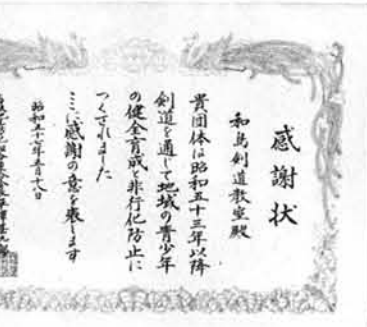 感謝状
和島剣道教室殿
貴団体は昭和五十三年以降
剣道を通して地域の青少年
の健全育成と非行化防止に
つくされました
ここに感謝の意を表します
昭和五十七年五月十八日